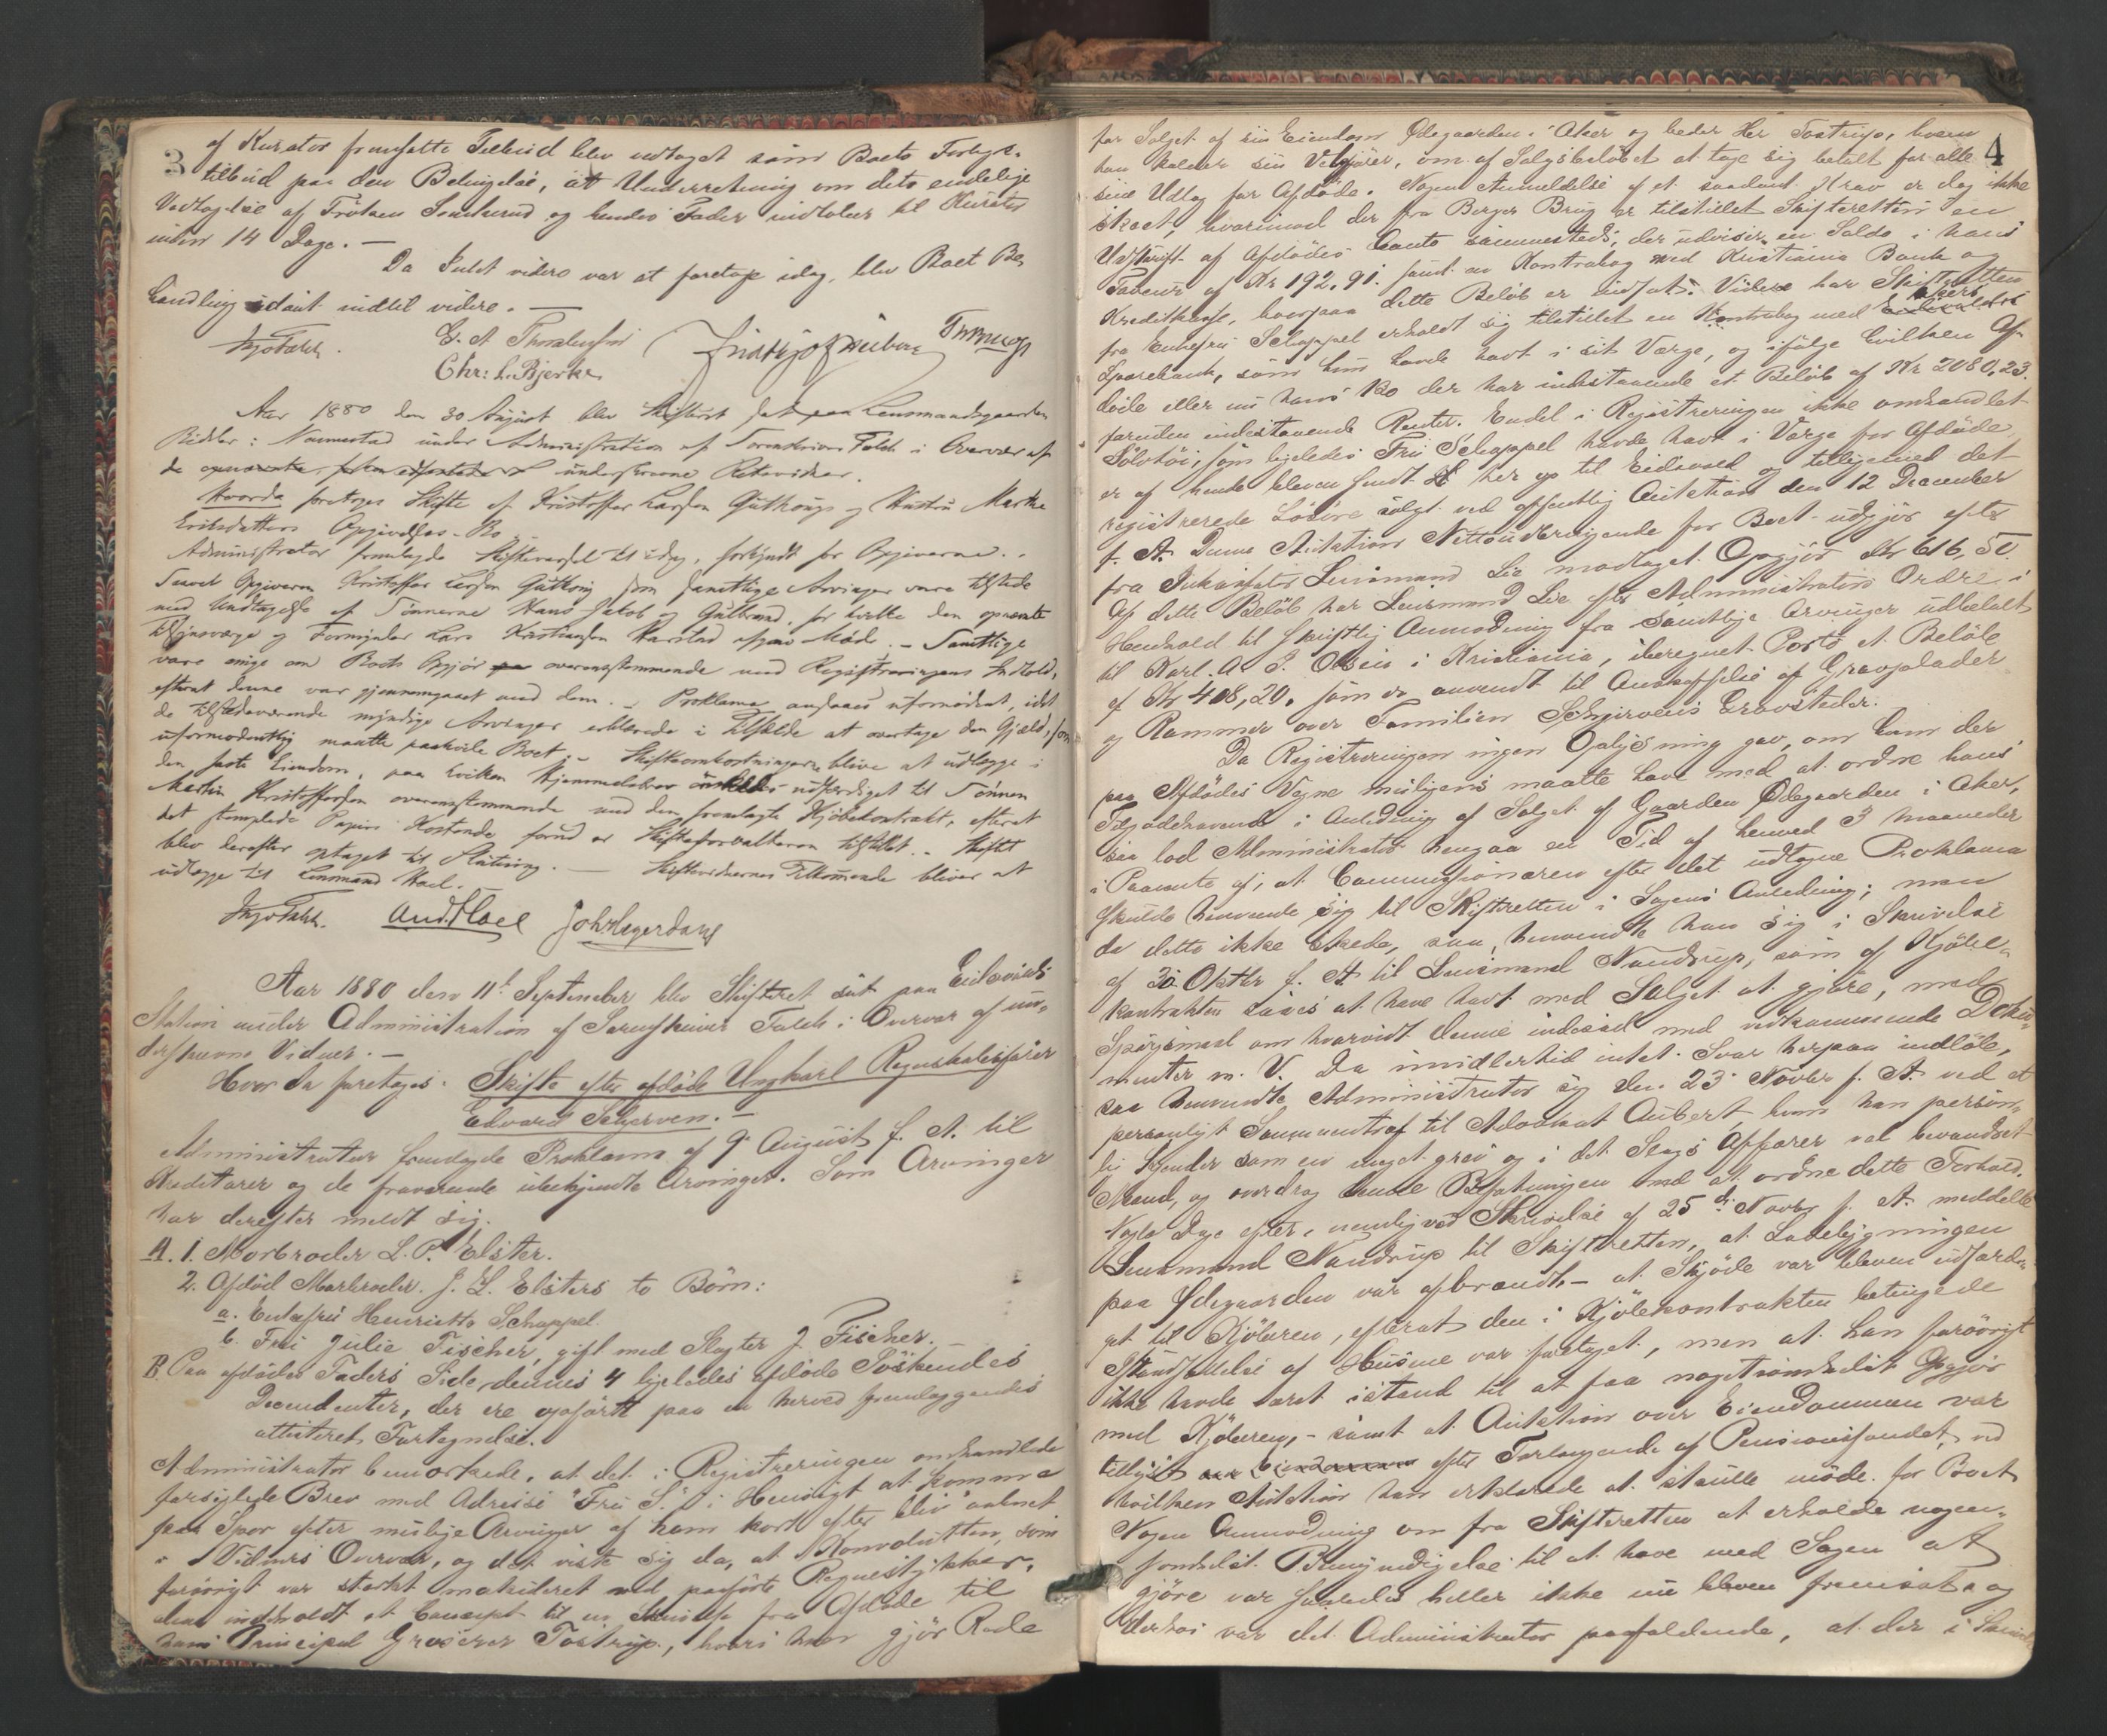 3
af Kurator fremsatte Tilbud blev vedtaget som Boets Forligs-
tilbud paa den Betingelse, at Underretning om dets endelige
Vedtagelse af Frøken og hendes Fader indløber til Kurator
inden 14 Dage. —
Da Intet videre var at foretage idag, blev Boet Be-
handling udsat indtil videre. —
Chr: L. Bjerke
Aar 1880 den 30 August blev Skifteret sat paa Lensmandsgaarden
Nannestad under Administration af Sorenskriver Falck i Overvær af
de underskrevne Retsvidner.
Hvorda foretoges Skifte af Kristoffer Larsen Gutkong og Hustru Marthe
Eriksdatters Opgivelses-Bo.
Administrator fremlagde Skiftevarsel til idag, forkyndt for Opgiverne.
Saavel Opgiveren Kristoffer Larsen som samtlige Arvinger vare tilstede
med Undtagelse af Sønnerne Hans Jakob og Gulbrand, for hvilke den opnævnte
Tilsynsværge og Formynder Lars Kristiansen Harstad afgav Møde. — Samtlige
vare enige om Boets Opgjør overensstemmende med Registreringens Indhold,
efterat denne var gjennemgaaet med dem. — Proklama ansaaes ufornødent, idet
de tilstedeværende myndige Arvinger erklærede i Tilfælde at overtage den Gjæld, som
uformodentlig maatte paahvile Boet. — Skifteomkostningerne blive at udlægge i
den faste Eiendom, paa hvilken Hjemmelsbrev udfærdiget til Sønnen
Martin Kristoffersen overensstemmende med den fremlagte Kjøbekontrakt, efterat
det stemplede Papirs Kostende forud er Skifteforvalteren tilstillet. — Skiftet
blev derefter optaget til Slutning. — Skiftevidnernes Tilkommende bliver at
udlægge til Lensmand Hael.
And. Hael Joh. Hagerdahl
Aar 1880 den 11te September blev Skifteret sat paa Eidsvolds
Station under Administration af Sorenskriver Falck i Overvær af un-
derskrevne Vidner. —
Hvor da foretoges: Skifte efter afdøde Ungkarl Regnskabsfører
Edvard Schjerven. —
Administrator fremlagde Proklama af 9de August f. A. til
Kreditorer og de fraværende ubekjendte Arvinger. Som Arvinger
har derefter meldt sig.
A. 1. Morbroder L. P. Elster.
2. Afdød Morbroder J. L. Elsters to Børn:
a. Enkefru Henriette Schappel.
b. Fru Julie Fischer, gift med Slagter J. Fischer.
B. Paa afdødes Faders Side, dennes 4 ligeledes afdøde Søskendes
Decendenter, der ere opførte paa en herved fremlæggendes
attesteret Fortegnelse.
Administrator bemærkede, at det i Registreringen omhandlede
forseglede Brev med Adresse "Fru S." i Hensigt at komme
paa Spor efter mulige Arvinger af ham kort efter blev aabnet
i Vidners Overvær, og det viste sig da, at Konvolutten, som
forøvrigt var stærkt makuleret med paaførte Regnestykker,
kun indeholdt et Concept til en Skrivelse fra Afdøde til
hans Principal Grosserer Tostrup, hvori han gjør Rede
4
for Salget af sin Eiendom Ødegaarden i Aker og beder Her Tostrup, hvem
han kalder sin Velgjører, om af Salgsbeløbet at tage sig betalt for alle
sine Udlæg for Afdøde. Nogen Anmeldelse af et saadant Krav er dog ikke
skeet, hvorimod der fra Berger Brug er tilstillet Skifteretten en
Udskrift af Afdødes Conto sammesteds, der udviser en Saldo i hans
Faveur af Kr 192,91. samt en Kontrabog med Kristiania Bank og
Kreditkasse, hvorpaa dette Beløb er indsat. Videre har Skifteretten
fra Enkefru Schappel erholdt sig tilstillet en Kontrabog med Akers
Sparebank, som hun havde havt i sit Værge, og ifølge hvilken Af-
døde eller nu hans Bo der har indestaaende et Beløb af Kr 2080,23.
foruden indestaaende Renter. Endel i Registreringen ikke omhandlet
Sølvtøi, som ligeledes Fru Schappel havde havt i Værge for Afdøde,
er af hende bleven sendt her op til Eidsvold og tilligemed det
registrerede Løsøre solgt ved offentlig Auktion den 12 December
f. A. Denne Auktions Nettoudbringende for Boet udgjør efter
fra Inkassator Lensmand Lie modtaget Opgjør Kr 616,50.
Af dette Beløb har Lensmand Lie efter Administrators Ordre i
Henhold til skriftlig Anmodning fra samtlige Arvinger udbetalt
til Karl A. J. Olsen i Kristiania, iberegnet Porto et Beløb
af Kr 408,20, som er anvendt til Anskaffelse af Gravplader
og Rammer over Familien Schjervens Gravsteder.
Da Registreringen ingen Oplysning gav, om ham der
paa Afdødes Vegne muligens maatte have med at ordne hans
Tilgodehavende i Anledning af Salget af Gaarden Ødegaarden i Aker,
saa lod Administrator hengaa en Tid af henved 3 Maaneder
i Paavente af, at Commissionæren efter det udtagne Proklama
skulde henvende sig til Skifteretten i Sagens Anledning; men
da dette ikke skede, saa henvendte han sig i Skrivelse
af 30 Oktbr f. A. til Lensmand Nandrup, som af Kjøbe-
kontrakten saaes at have havt med Salget at gjøre, med
Spørgsmaal om hvorvidt denne indesad med vedkommende Doku-
menter m. V. Da imidlertid intet Svar herpaa indløb,
saa henvendte Administrator sig den 23de Novbr f. A. ved et
personligt Sammentræf til Advokat Aubert, hvem han person-
lig kjender som en meget grei og i det Slags Affærer vel bevandret
Mand, og overdrog denne Befatningen med at ordne dette Forhold.
Nogle Dage efter, nemlig ved Skrivelse af 25de Novbr f. A. meddelte
Lensmand Nandrup til Skifteretten, at Ladebygningen
paa Ødegaarden var afbrændt, — at Skjøde var bleven udfærdi-
get til Kjøberen, efterat den i Kjøbekontrakten betingede
Istandsættelse af Husene var foretaget, men at han forøvrigt
ikke havde været istand til at faa nogetsomhelst Opgjør
med Kjøberen, — samt at Auktion over Eiendommen var
tillyst efter Forlangende af Pensionsfondet, ved
hvilken Auktion han erklærede at skulle møde for Boet.
Nogen Anmodning om fra Skifteretten at erholde nogen-
somhelst Bemyndigelse til at have med Sagen at
gjøre var saaledes heller ikke nu bleven fremsat, og
derhos var det Administrator paafaldende, at der i